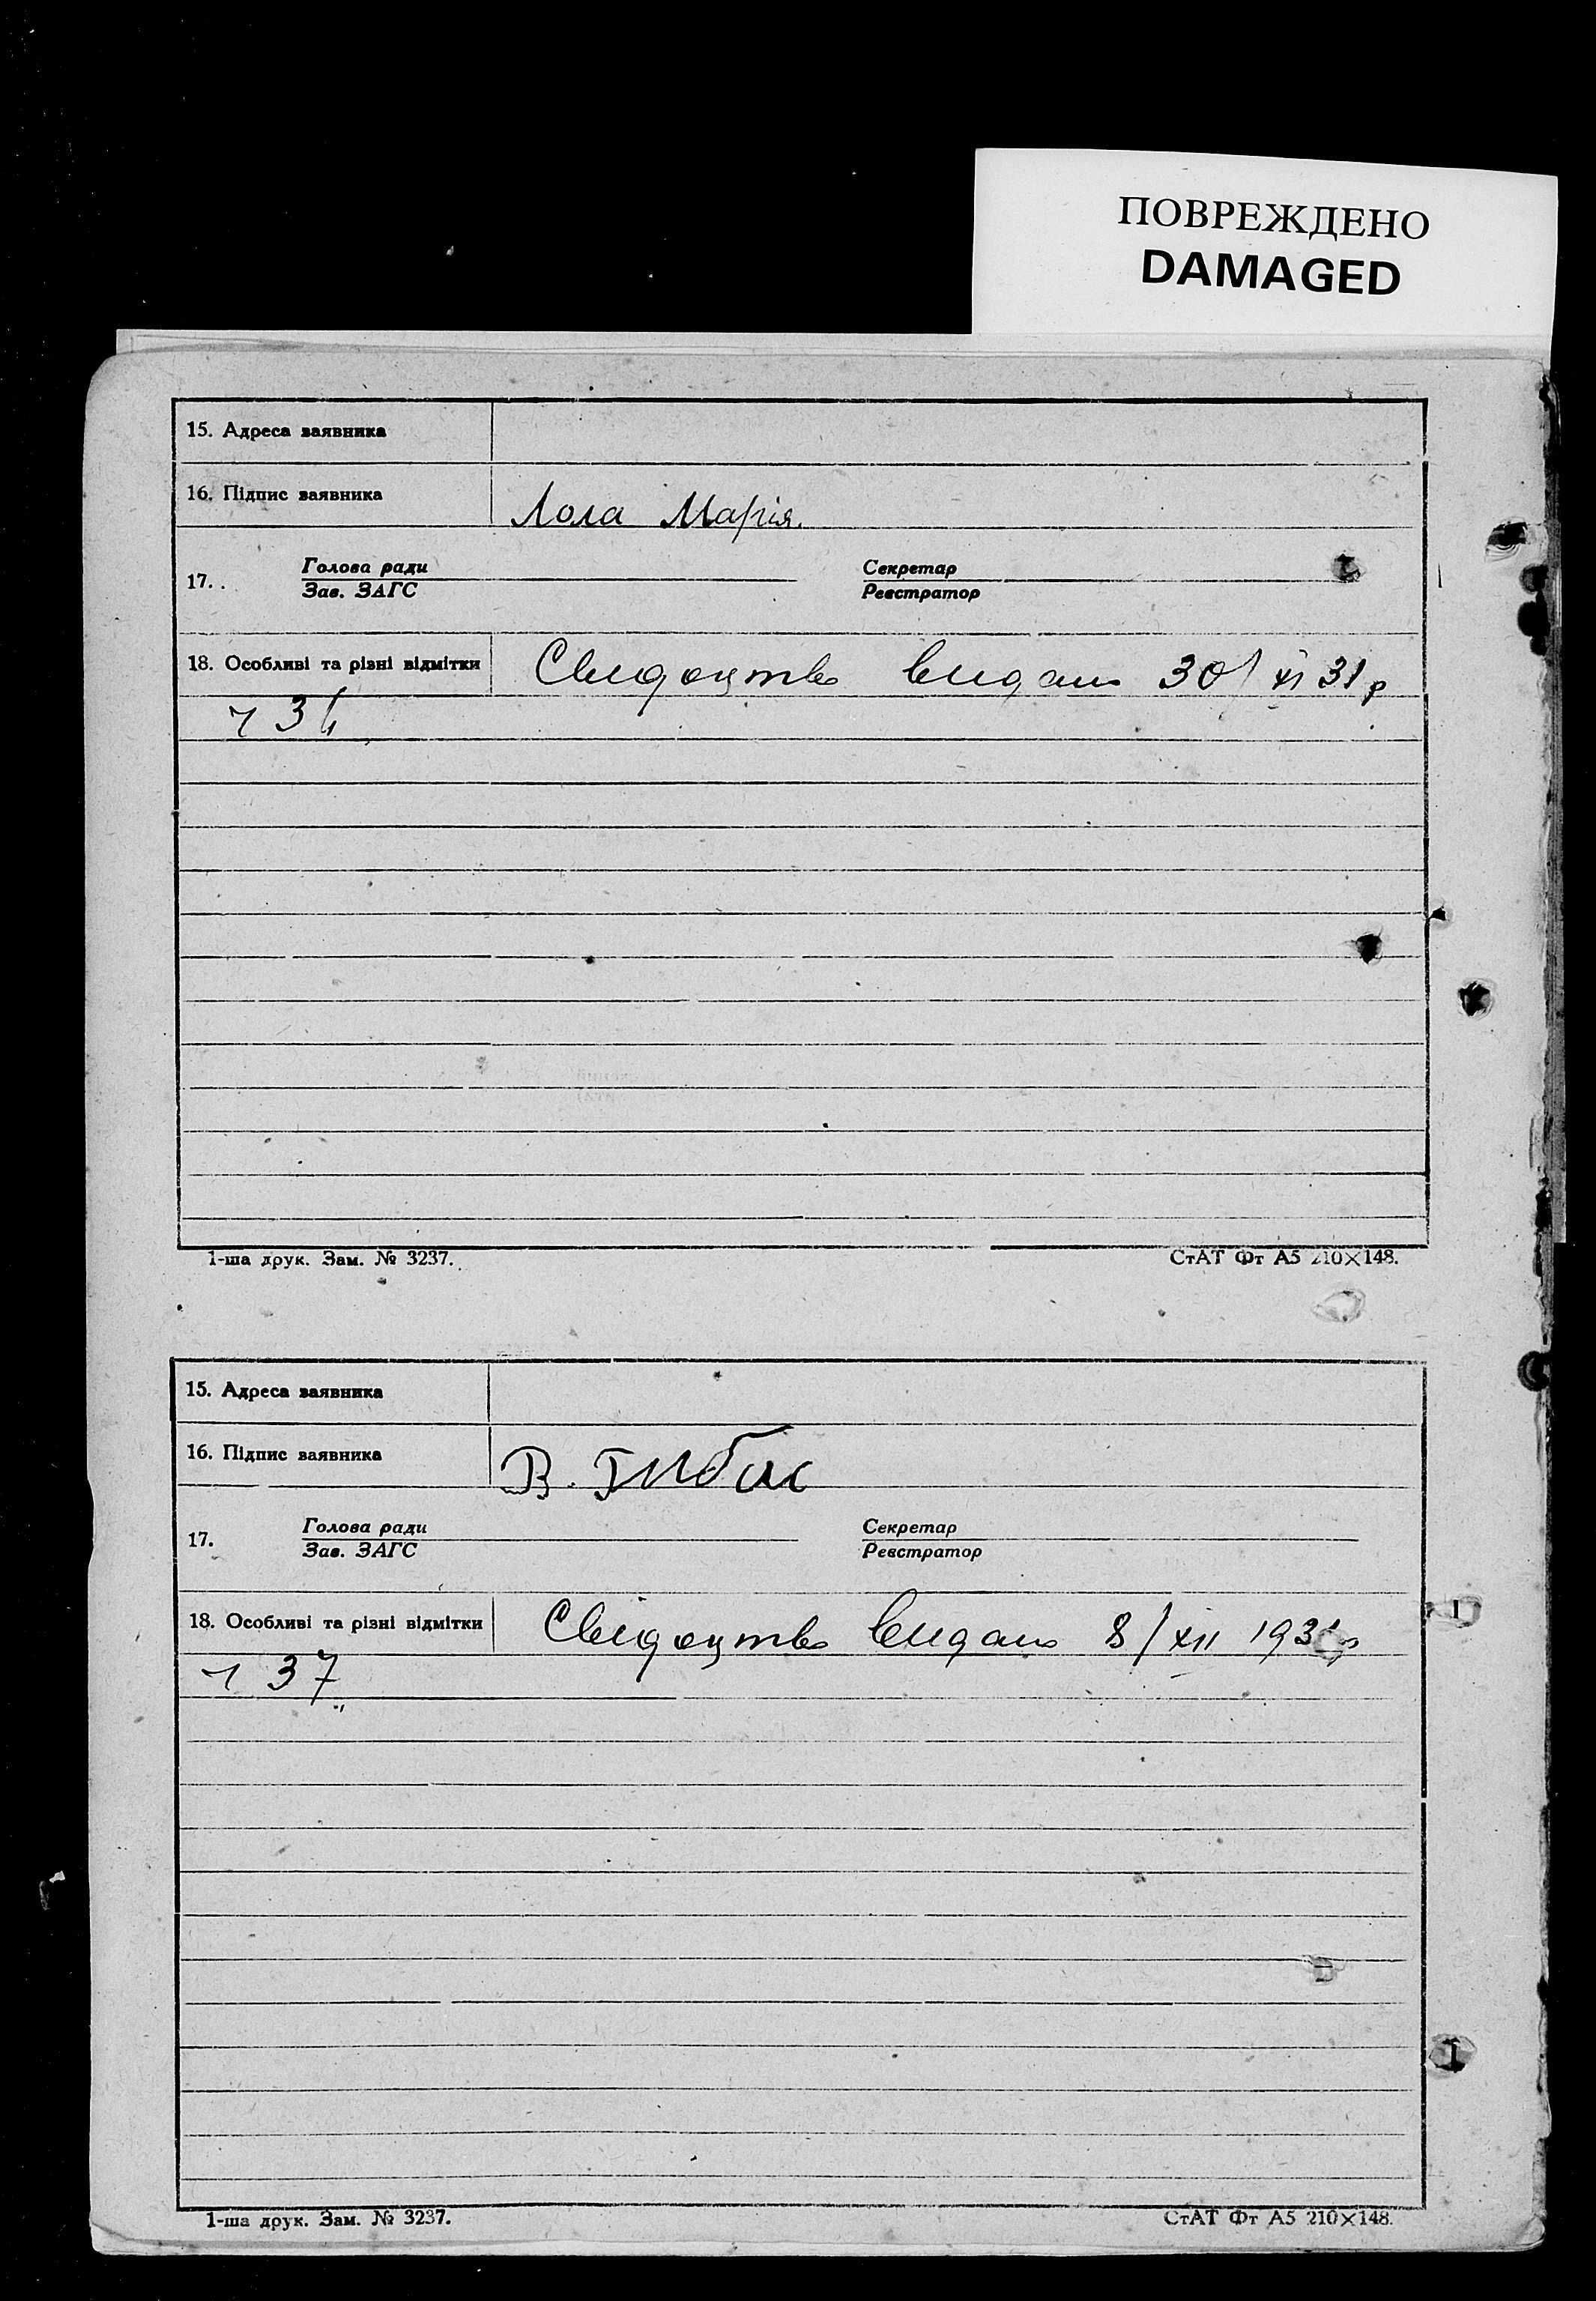 ПОВРЕЖДЕНО
DAMAGED
15. Адреса заявника
16. Підпис заявника Лола Марія.
17. Голова ради Секретар
Зав. ЗАГС Реєстратор
18. Особливі та різні відмітки Свидоцтво видано 30/XI 31р
ч 34
1-ша друк. Зам. № 3237. СтАТ Фт А5 210×148.
15. Адреса заявника
16. Підпис заявника В.
17. Голова ради Секретар
Зав. ЗАГС Реєстратор
18. Особливі та різні відмітки Свидоцтво видано 8/XII 1931р
ч 37
1-ша друк. Зам. № 3237. СтАТ Фт А5 210×148.